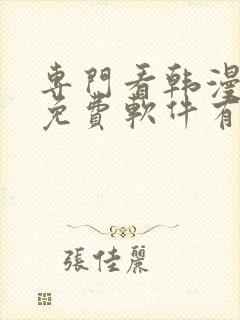 專門看韩漫
免費軟件有
張佳麗